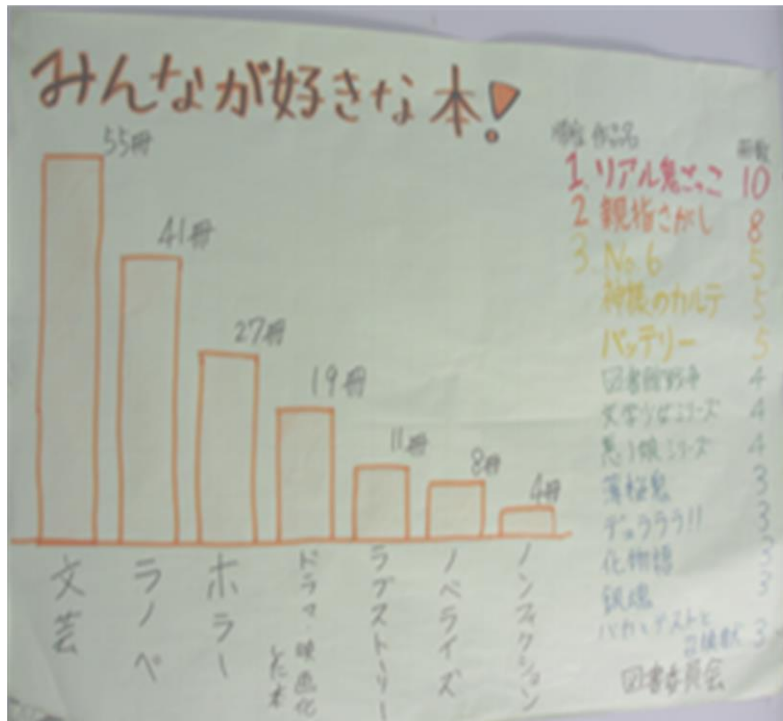 みんなが好きな本!
55冊
41冊
27冊
19冊
11冊
8冊
4冊
文芸
ラノベ
ホラー
ドラマ・映画化
した本
ラブストーリー
ノベライズ
ノンフィクション
順位 作品名 冊数
1. リアル鬼ごっこ 10
2 親指さがし 8
3. No.6 5
神様のカルテ 5
バッテリー 5
図書館戦争 4
文学少女シリーズ 4
悪ノ娘シリーズ 4
薄桜鬼 3
デュラララ!! 3
化物語 3
銀魂 3
バカとテストと
召喚獣 3
図書委員会